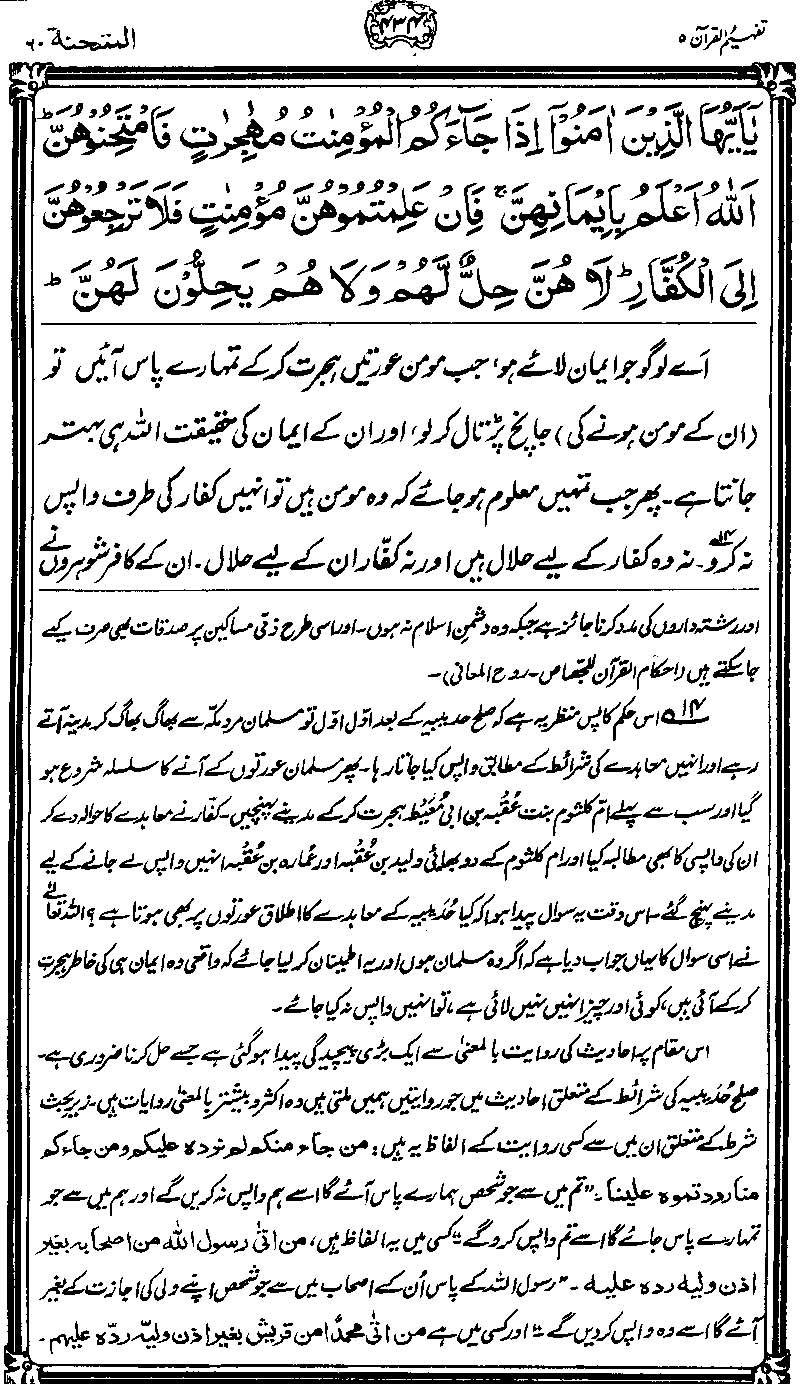 تفہیم القرآن ۵
۴۳۴
الممتحنۃ ۶۰
یٰۤاَیُّهَا الَّذِیْنَ اٰمَنُوْۤا اِذَا جَآءَكُمُ الْمُؤْمِنٰتُ مُهٰجِرٰتٍ فَامْتَحِنُوْهُنَّ ؕ
اَللّٰهُ اَعْلَمُ بِاِیْمَانِهِنَّ ۚ فَاِنْ عَلِمْتُمُوْهُنَّ مُؤْمِنٰتٍ فَلَا تَرْجِعُوْهُنَّ
اِلَی الْكُفَّارِ ؕ لَا هُنَّ حِلٌّ لَّهُمْ وَلَا هُمْ یَحِلُّوْنَ لَهُنَّ ؕ
اَے لوگو جو ایمان لائے ہو، جب مومن عورتیں ہجرت کر کے تمہارے پاس آئیں تو
(ان کے مومن ہونے کی) جانچ پڑتال کر لو، اور ان کے ایمان کی حقیقت اللہ ہی بہتر
جانتا ہے۔ پھر جب تمہیں معلوم ہو جائے کہ وہ مومن ہیں تو انہیں کفار کی طرف واپس
نہ کرو۱۴۔ نہ وہ کفار کے لیے حلال ہیں اور نہ کفّار ان کے لیے حلال۔ ان کے کافر شوہروں نے
اور رشتہ داروں کی مدد کرنا جائز ہے جبکہ وہ دشمنِ اسلام نہ ہوں۔ اور اسی طرح ذمّی مساکین پر صدقات بھی صرف کیے
جا سکتے ہیں (احکام القرآن للجصاص۔ روح المعانی)۔
۱۴ اس حکم کا پس منظر یہ ہے کہ صلح حدیبیہ کے بعد اوّل اوّل تو مسلمان مرد مکّہ سے بھاگ بھاگ کر مدینہ آتے
رہے اور انہیں معاہدے کی شرائط کے مطابق واپس کیا جاتا رہا۔ پھر مسلمان عورتوں کے آنے کا سلسلہ شروع ہو
گیا اور سب سے پہلے امّ کلثوم بنت عُقبہ بن ابی مُعَیط ہجرت کر کے مدینے پہنچیں۔ کفّار نے معاہدے کا حوالہ دے کر
ان کی واپسی کا بھی مطالبہ کیا اور ام کلثوم کے دو بھائی ولید بن عُقبہ اور عُمارہ بن عُقبہ انہیں واپس لے جانے کے لیے
مدینے پہنچ گئے۔ اس وقت یہ سوال پیدا ہوا کہ کیا حُدَیبیہ کے معاہدے کا اطلاق عورتوں پر بھی ہوتا ہے؟ اللہ تعالٰے
نے اسی سوال کا یہاں جواب دیا ہے کہ اگر وہ مسلمان ہوں اور یہ اطمینان کر لیا جائے کہ واقعی وہ ایمان ہی کی خاطر ہجرت
کر کے آئی ہیں، کوئی اور چیز انہیں نہیں لائی ہے، تو انہیں واپس نہ کیا جائے۔
اس مقام پر احادیث کی روایت بالمعنیٰ سے ایک بڑی پیچیدگی پیدا ہو گئی ہے جسے حل کرنا ضروری ہے۔
صلح حُدَیبیہ کی شرائط کے متعلق احادیث میں جو روایتیں ہمیں ملتی ہیں وہ اکثر و بیشتر بالمعنیٰ روایات ہیں۔ زیرِ بحث
شرط کے متعلق ان میں سے کسی روایت کے الفاظ یہ ہیں: من جاء منکم لم نردہ علیکم ومن جاء کم
منا رددتموہ علینا۔ "تم میں سے جو شخص ہمارے پاس آئے گا اسے ہم واپس نہ کریں گے اور ہم میں سے جو
تمہارے پاس جائے گا اسے تم واپس کرو گے" کسی میں یہ الفاظ ہیں، من اتی رسول اللہ من اصحابہ بغیر
اذن ولیہ ردہ علیہ۔ "رسول اللہ کے پاس اُن کے اصحاب میں سے جو شخص اپنے ولی کی اجازت کے بغیر
آئے گا اسے وہ واپس کر دیں گے"۔ اور کسی میں ہے من اتی محمدًا من قریش بغیر اذن ولیّہ ردّہ علیہم۔